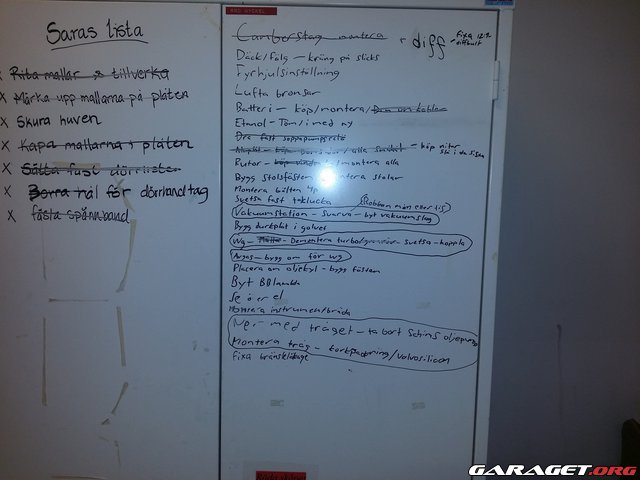 Saras lista
x Rita mallar tillverka
x Märka upp mallarna på plåten
x Skura huven
x Kapa mallarna i plåten
x Sätta fast dörrlister
x Borra hål för dörrhandtag
x fästa spännband
Camberstag montera
+ diff
Däck/Fälg - kräng på slicks
Fyrhjulsinställning
Lufta bromsar
Batteri - köp/montera/
Etanol - Töm/i med ny
Dra fast
Rutor - montera alla
Bygg stolsfästen montera stolar
Montera bälten 4p
Svetsa fast taklucka
Vakuumstation - svarva - byt vakuumslag
Bygg durkplåt i golvet
Wg - Demontera turbo/grenrör svetsa - koppla
Avgas - bygg om för wg
Placera om oljekyl - bygg fästen
Byt BB lambda
Se över el
Montera instrument/bräda
Ner med tråget - ta bort oljepump
Montera tråg - korkpackning/Volvosilicon
fixa bränsleläckage
GARAGET.ORG